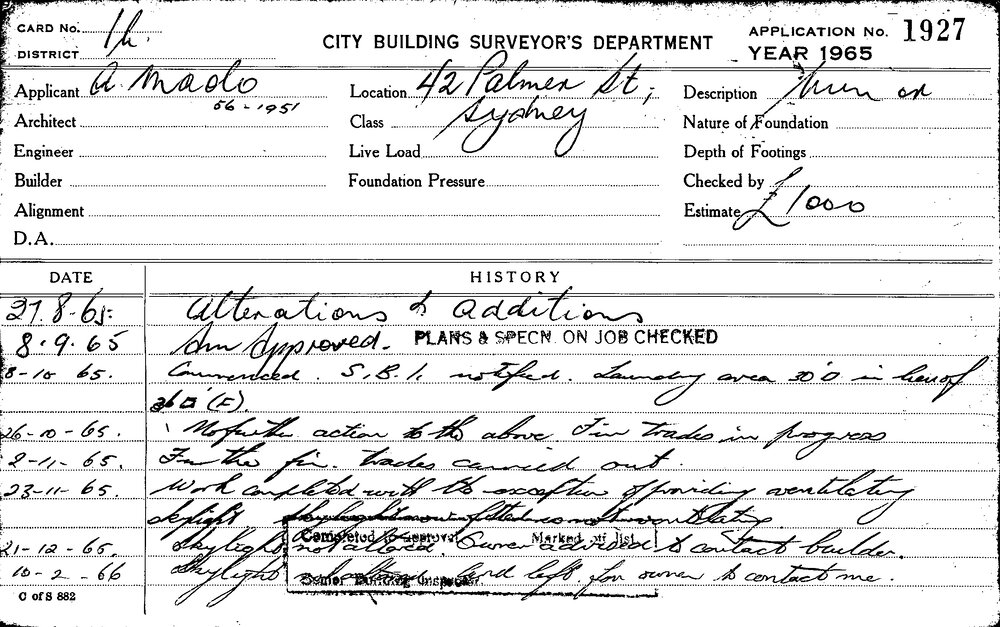 CARD No.
DISTRICT
CITY BUILDING SURVEYOR'S DEPARTMENT
APPLICATION No. 1927
YEAR 1965
Applicant A. Mado
56-1951
Location 42 Palmer St,
Sydney
Description
Architect
Class
Nature of Foundation
Engineer
Live Load
Depth of Footings
Builder
Foundation Pressure
Checked by
Alignment
Estimate £1000
D.A.
DATE HISTORY
27.8.65 Alterations & additions
8.9.65 Approved. PLANS & SPECN. ON JOB CHECKED
8-10 65. Commenced. S.B.I. notified. Laundry area 30'0 in lieu of
36 (E).
26-10-65. No further action to the above. Fin trades in progress
2-11-65. Further fin. trades carried out.
23-11-65. Work completed with the exception of providing ventilating
skylight
21-12-65. Skylight not altered. Owner advised to contact builder.
Completed to approval Marked off list
10-2-66 Skylight card left for owner to contact me.
Senior Building Inspector
C of S 882